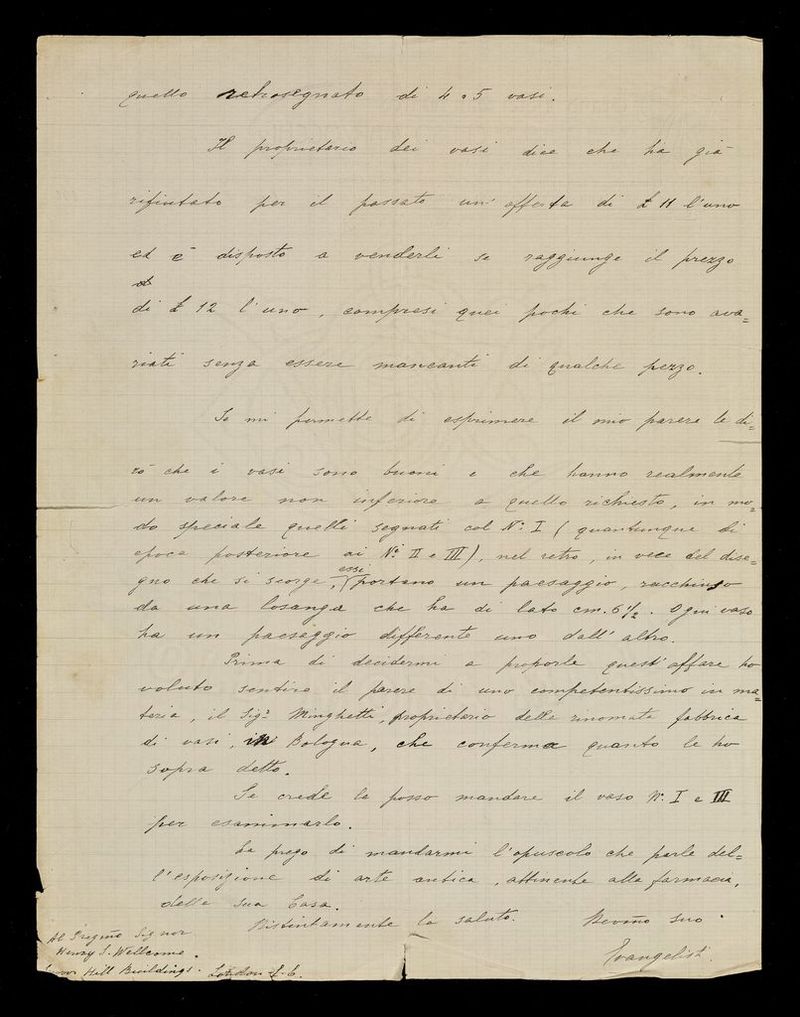 quello retrosegnato di 4 o 5 vasi.
Il proprietario dei vasi dice che ha già
rifiutato per il passato un' offerta di £ 11 l'uno
ed è disposto a venderli se raggiunge il prezzo
di £ 12 l'uno, compresi quei pochi che sono ava=
riati senza essere mancanti di qualche pezzo.
Se mi permette di esprimere il mio parere le di=
rò che i vasi sono buoni e che hanno realmente
un valore non inferiore a quello richiesto, in mo=
do speciale quelli segnati col Nº I (quantunque di
epoca posteriore ai Nº II e III), nel retro, in vece del dise=
essi
gno che si scorge, portano un paesaggio, racchiuso
da una losanga che ha di lato cm. 6 1/2. Ogni vaso
ha un paesaggio differente uno dall' altro.
Prima di decidermi a proporle quest' affare ho
voluto sentire il parere di uno competentissimo in ma=
teria, il Sigr Minghetti, proprietario della rinomata fabbrica
di vasi, in Bologna, che conferma quanto le ho
sopra detto.
Se crede le posso mandare il vaso Nº I e III
per esaminarlo.
La prego di mandarmi l'opuscolo che parla del=
l'esposizione di arte antica, attinente alla farmacia,
della Sua Casa.
Distintamente la saluto. Devmo suo
Evangelisti.
Al Pregmo Signor
Henry S. Wellcome.
Hill Buildings. London E.C.